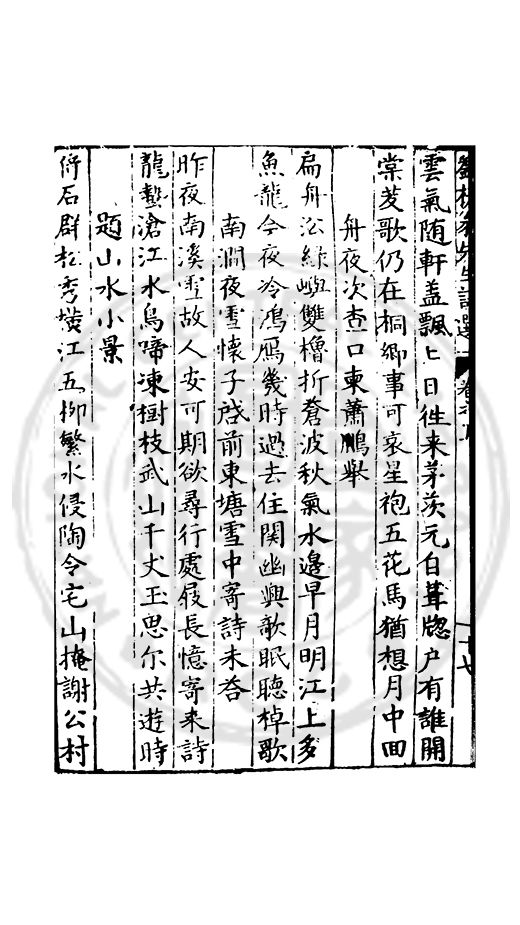 雲氣随軒盖飄〻日徃来茅茨元自葺牕户有誰開
棠芰歌仍在桐鄉事可哀星袍五花馬猶想月中回
舟夜次查口柬蕭鵬舉
扁舟㳂綠嶼雙櫓折蒼波秋氣水邊早月明江上多
魚龍今夜冷鴻鴈幾時過去住関幽興欹眠聽棹歌
南澗夜雪懷子啓前東塘雪中寄詩未荅
昨夜南溪雪故人安可期欲尋行處屐長憶寄来詩
龍蟄滄江水鳥啼凍樹枝武山千丈玉思尔共遊時
題山水小景
倚石群松秀横江五柳繁水侵陶令宅山掩謝公村